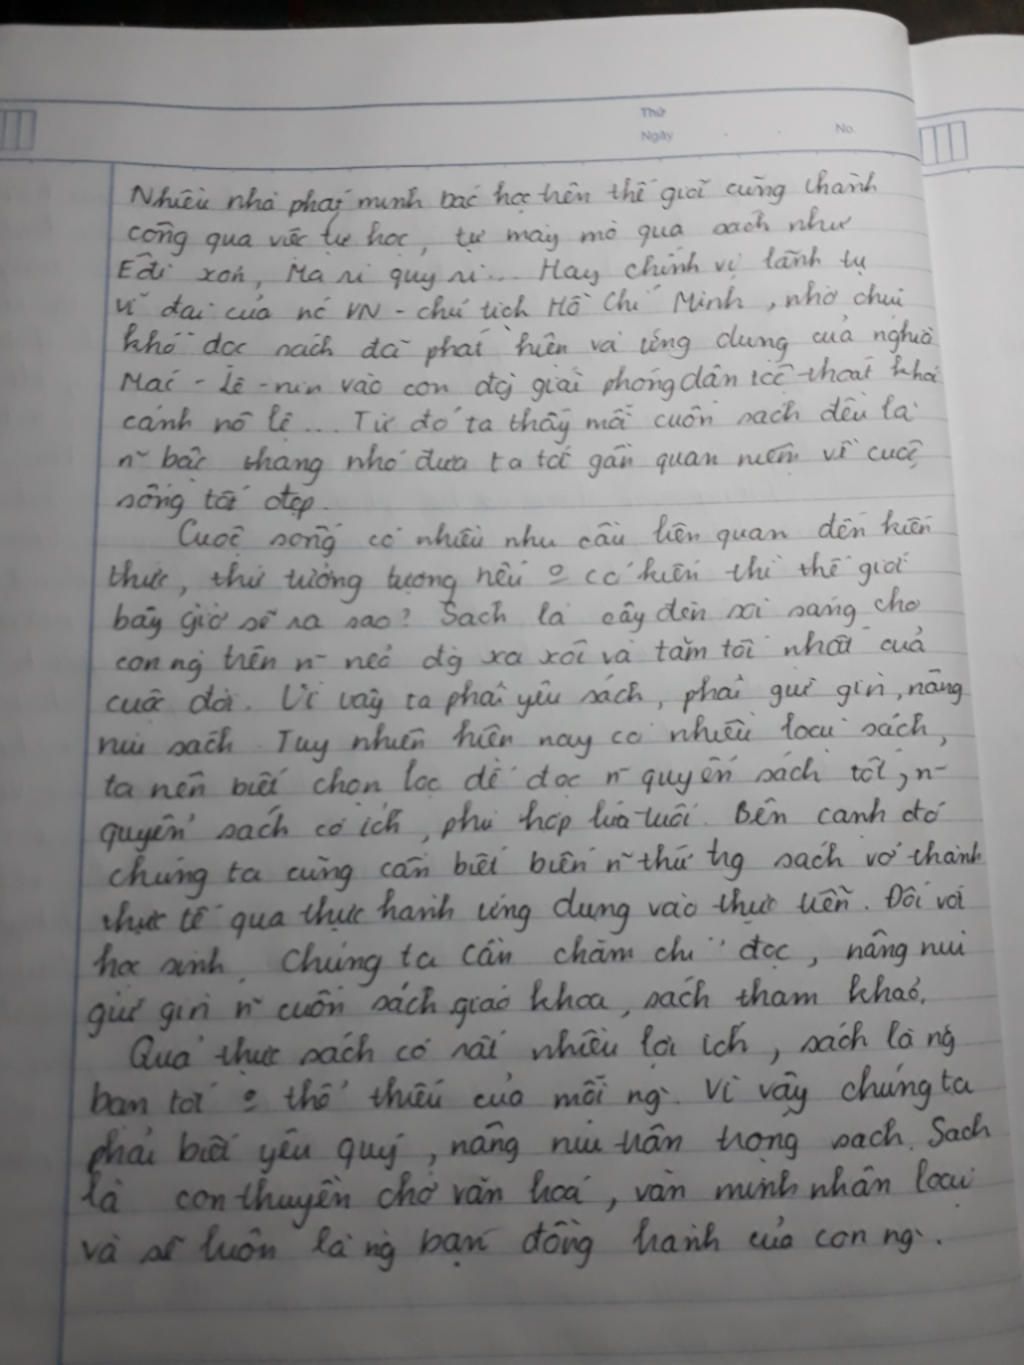 Thứ
Ngày
No.
Nhiều nhà phát minh bác học trên thế giới cũng thành
công qua việc tự học, tự mày mò qua sách như
Êđi xơn, Ma ri quy ri... Hay chính vị lãnh tụ
vĩ đại của nc VN - chủ tịch Hồ Chí Minh, nhờ chịu
khó đọc sách đã phát hiện và ứng dụng của nghĩa
Mác - Lê - nin vào con đg giải phóng dân tộc thoát khỏi
cảnh nô lệ ... Từ đó ta thấy mỗi cuốn sách đều là
n~ bậc thang nhỏ đưa ta tới gần quan niệm về cuộc
sống tốt đẹp.
Cuộc sống có nhiều nhu cầu liên quan đến kiến
thức, thử tưởng tượng nếu o có kiến thì thế giới
bây giờ sẽ ra sao? Sách là cây đèn soi sáng cho
con ng trên n~ nẻo đg xa xôi và tăm tối nhất của
cuộc đời. Vì vậy ta phải yêu sách, phải giữ gìn, nâng
niu sách. Tuy nhiên hiện nay có nhiều loại sách,
ta nên biết chọn lọc để đọc n~ quyển sách tốt, n~
quyển sách có ích, phù hợp lứa tuổi. Bên cạnh đó
chúng ta cũng cần biết biến n~ thứ trg sách vở thành
thực tế qua thực hành ứng dụng vào thực tiễn. Đối với
học sinh, chúng ta cần chăm chỉ đọc, nâng niu
giữ gìn n~ cuốn sách giáo khoa, sách tham khảo.
Quả thực sách có rất nhiều lợi ích, sách là ng
bạn tốt o thể thiếu của mỗi ng. Vì vậy chúng ta
phải biết yêu quý, nâng niu trân trọng sách. Sách
là con thuyền chở văn hoá, văn minh nhân loại
và sẽ luôn là ng bạn đồng hành của con ng.